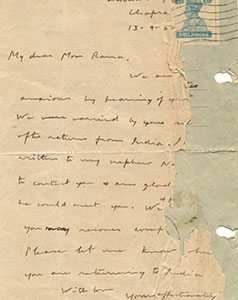 Chapra
13-9-52
My dear Mom Rama.
We are
anxious by hearing of your
We were worried by yours
after return from India. I
written to my nephew
to contact you & am glad
he could meet you. We
you may recover
Please let me know
you are returning to India
With love
Yours affectionately